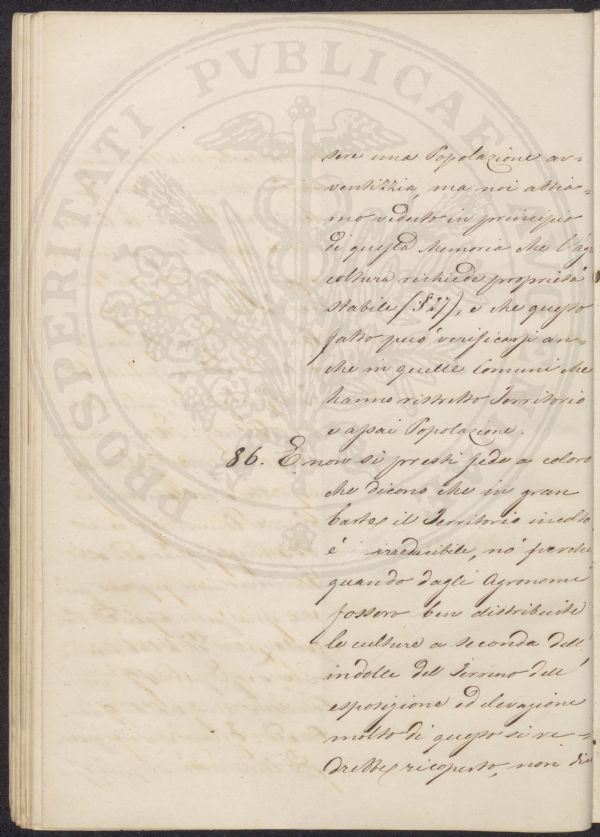 PROSPERITATI PVBLICAE
sere una Popolazione av=
ventizzia, ma noi abbia=
mo veduto in principio
di questa Memoria che l'agri
coltura richiede proprietà
stabile (§ 27), e che questo
fatto può verificarsi an=
che in quelle Comuni che
hanno ristretto Territorio
e assai Popolazione.
86. E non si presti fede a coloro
che dicono che in gran
parte il Territorio incolto
è irreducibile, nò perchè
quando dagli Agronomi
fossero ben distribuite
le culture a seconda dell'
indole del Terreno dell'
esposizione ed elevazione
molto di questo si ve=
drebbe ricoperto, non di